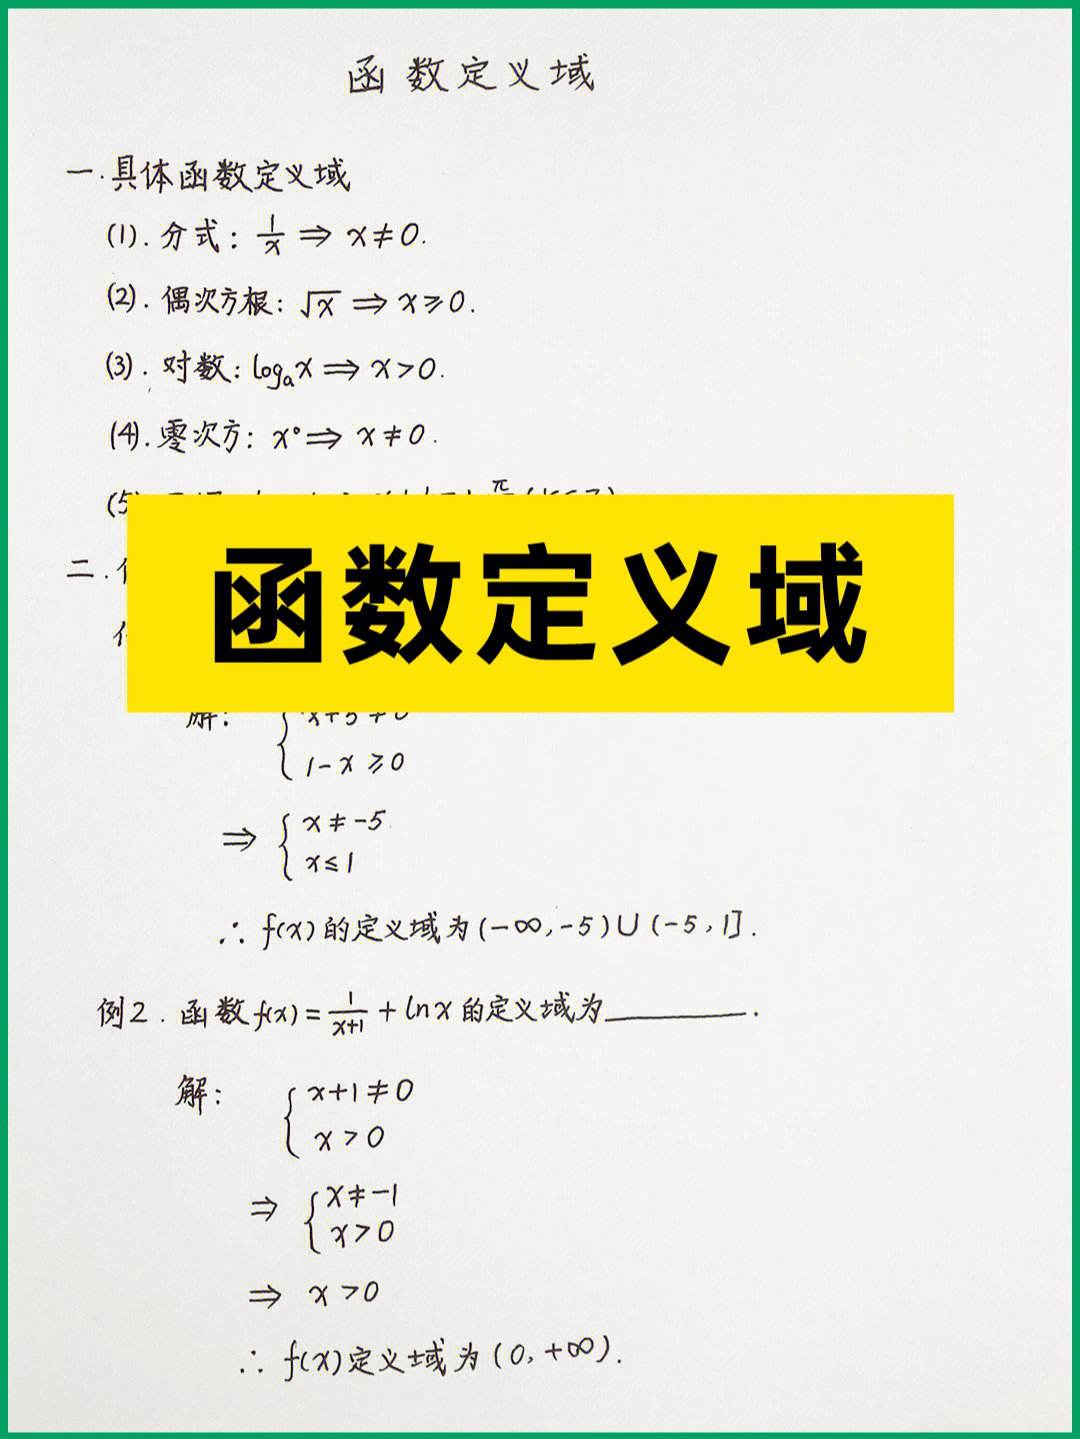 函数定义域
一.具体函数定义域
(1).分式:1/x⇒x≠0.
(2).偶次方根:√x⇒x≥0.
(3).对数:logₐx⇒x>0.
(4).零次方:x°⇒x≠0.
(5)
二.
函数定义域
解: { x+5≠0
1-x≥0
⇒ { x≠-5
x≤1
∴ f(x)的定义域为(-∞,-5)∪(-5,1].
例2.函数f(x)=1/(x+1)+lnx的定义域为______.
解: { x+1≠0
x>0
⇒ { x≠-1
x>0
⇒ x>0
∴ f(x)定义域为(0,+∞).